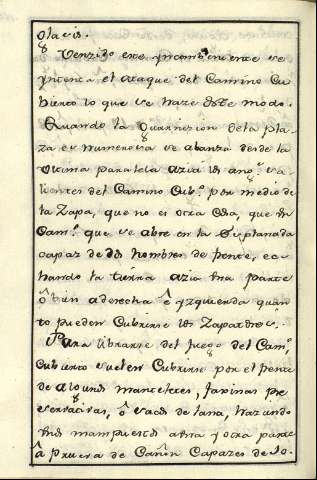 Glacis.
Venzido este yncombeniente se
yntenta el ataque del Camino Cu-
bierto lo que se haze deste modo.
Quando la Guarnizion dela pla-
za es numerosa se abanza desde la
vltima paralela azia los angs sa-
lientes del Camino Cubto por medio de
la Zapa, que no es otra Cosa, que vn
Camo que se abre en la Esplanada
capaz de dos hombres de frente, ec-
hando la tierra azia vna parte
ô bien a derecha ê yzquierda quan-
to pueden Cubrirse los Zapadores.
Para librarse del fuego del Camo
Cubierto suelen Cubrirse por el frente
de algunos manteletes, faxinas pre-
ô sacos de lana, haziendo
vnos mampuestos a vna y otra parte
â prueva de Cañon Capazes de so-